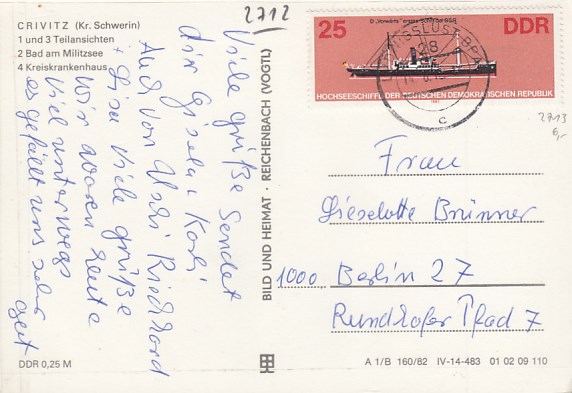 CRIVITZ (Kr. Schwerin)
1 und 3 Teilansichten
2 Bad am Militzsee
4 Kreiskrankenhaus
2712
Viele Grüße sendet
dir Gisela Karli
Auch von Uschi Richard
+ Lisa viele Grüße
Wir waren heute
viel unterwegs
es gefällt uns sehr
gut
DDR 0,25 M
BILD UND HEIMAT · REICHENBACH (VOGTL)
25
DDR
HOCHSEESCHIFFE DER DEUTSCHEN DEMOKRATISCHEN REPUBLIK
28
c
2713
6,-
Frau
Lieselotte Brünner
1000 Berlin 27
Rundhofer Pfad 7
A 1/B 160/82 IV-14-483 01 02 09 110